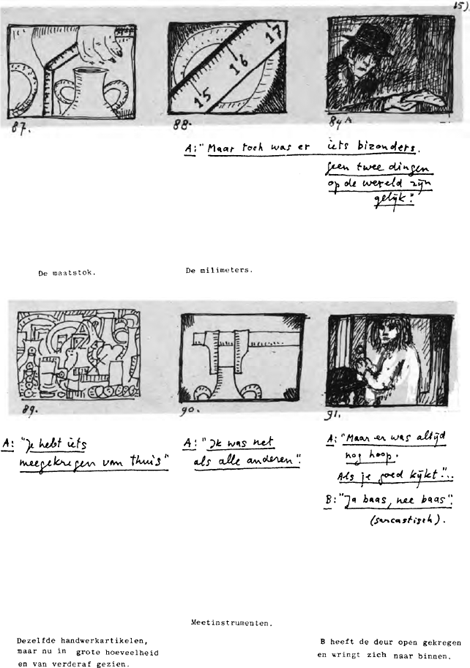 15)
15 16 17
87.
88.
A: "Maar toch was er iets bizonders.
Geen twee dingen
op de wereld zijn
gelijk."
De maatstok.
De milimeters.
89.
90.
91.
A: "Je hebt iets
meegekregen van thuis"
A: "Ik was net
als alle anderen".
A: "Maar er was altijd
nog hoop.
Als je goed kijkt"..
B: "Ja baas, nee baas".
(sarcastisch).
Meetinstrumenten.
Dezelfde handwerkartikelen,
maar nu in grote hoeveelheid
en van verderaf gezien.
B heeft de deur open gekregen
en wringt zich naar binnen.